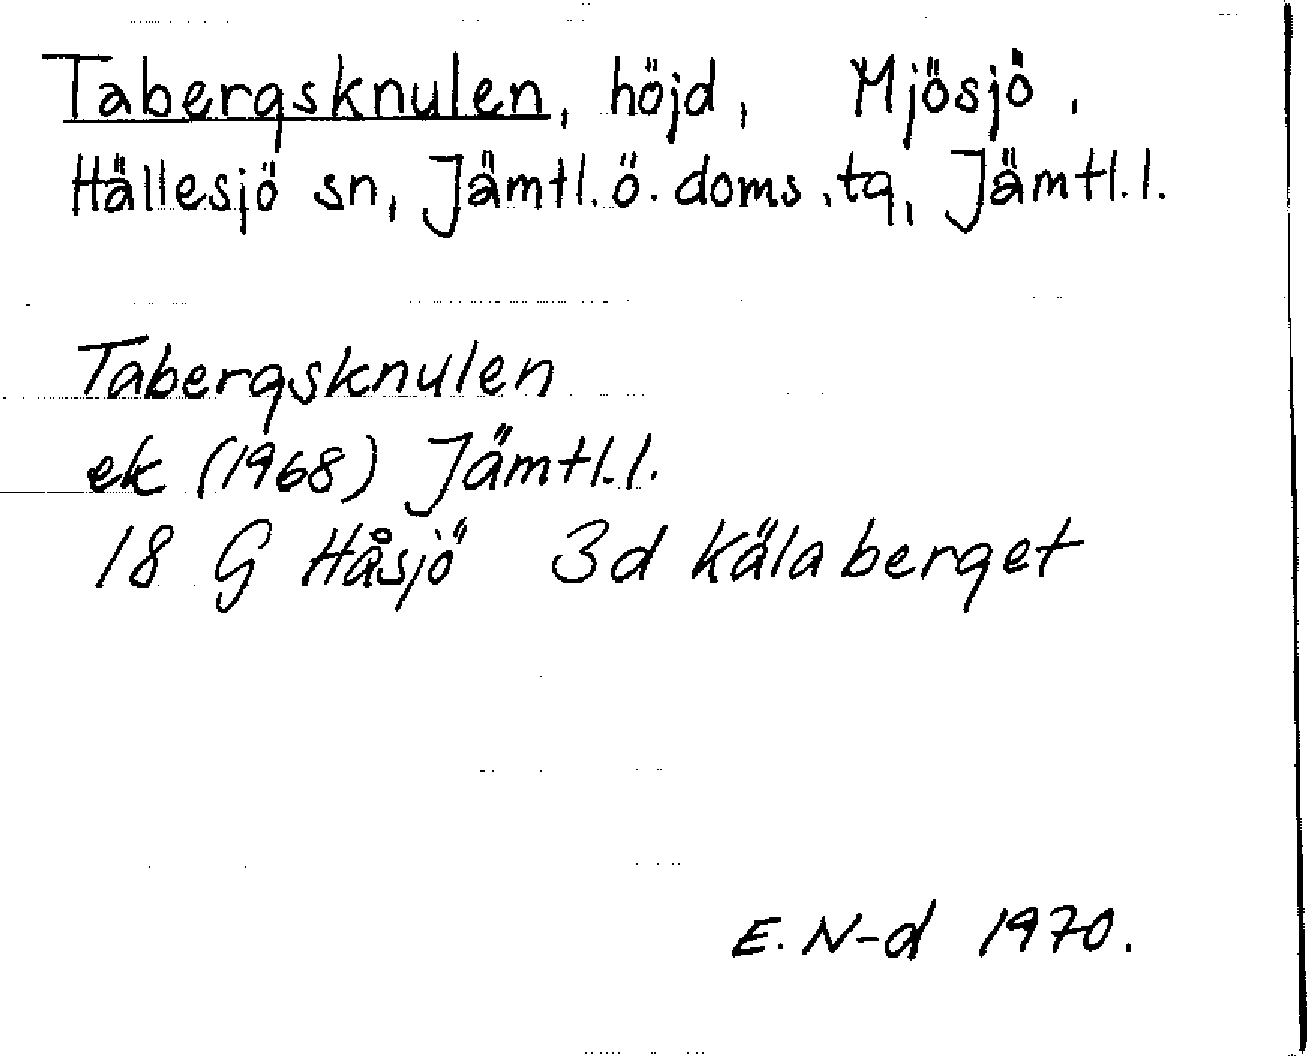 Tabergsknulen, höjd, Mjösjö.
Hällesjö sn, Jämtl. ö. doms. tg, Jämtl. l.
Tabergsknulen
ek (1968) Jämtl. l.
18 G Håsjö 3d Kälaberget
E. N-d 1970.